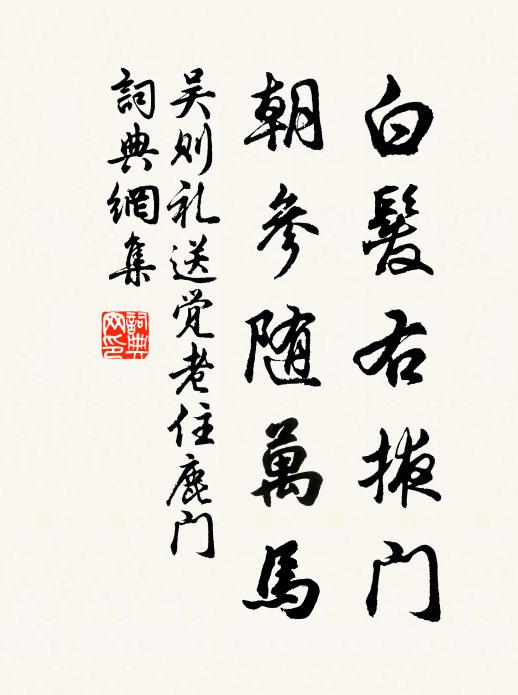 白髮右掖门
朝參随萬馬
吴则礼送觉老住鹿门
詞典網集
詞典网印